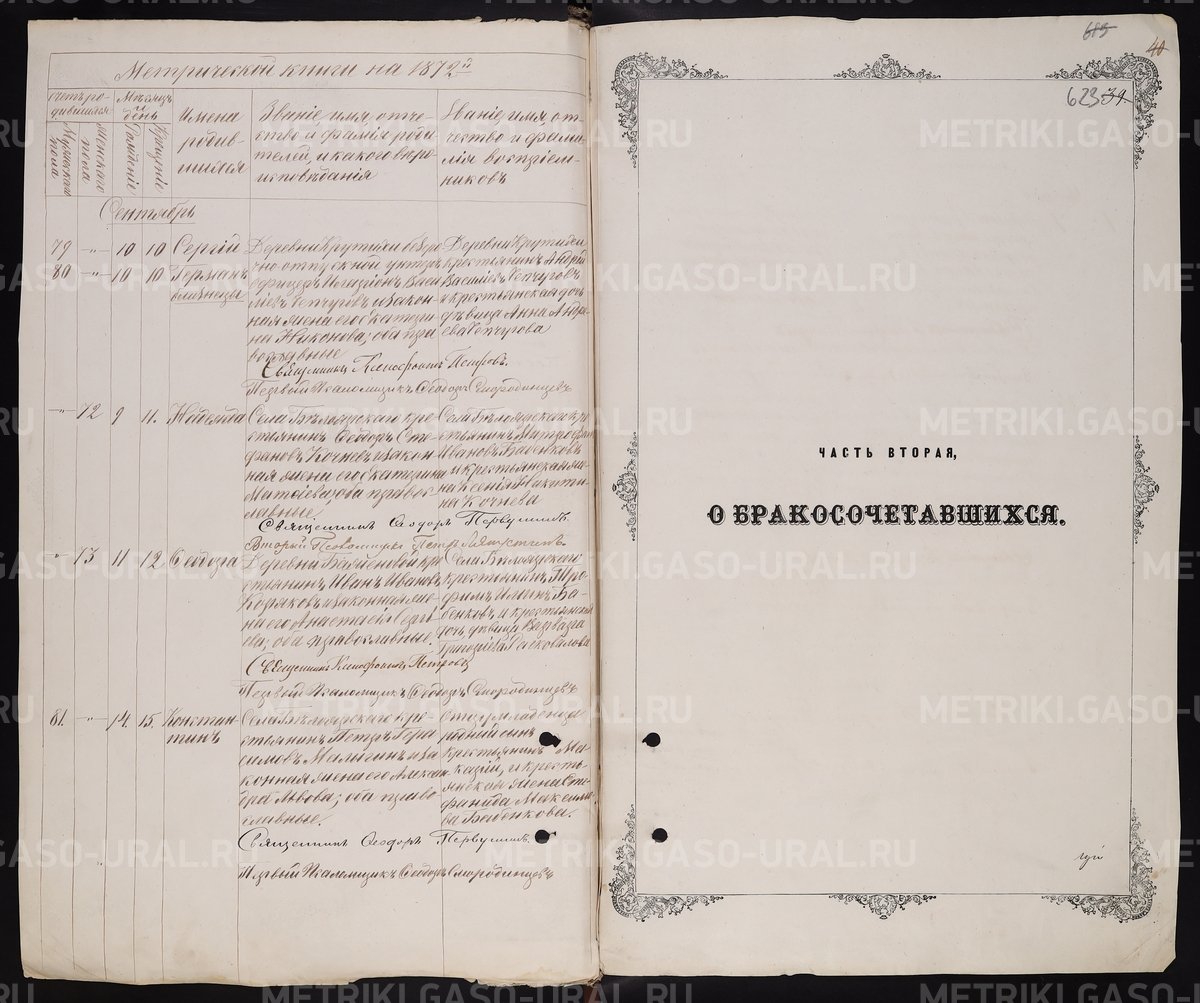 Метрической книги на 1872й
счетъ ро-
дившихся
Мужеска
пола
Женскаго
пола
Мѣсяцъ
и
день
Рожденіе
Крещеніе
Имена
родив-
шихся
Званіе имя, отче-
ство и фамилія роди-
телей, и какого вѣро-
исповѣданія
Званіе имя, от-
чество и фами-
лія воспріем-
никовъ
Сентябрь
79 " 10 10 Сергій
80 " 10 10 Германъ
близнецы
Деревни Крутихи безсро-
чно отпускной унтеръ
офицеръ Васи-
льевъ Чепчуговъ и закон-
ная жена его Екатери-
на Никонова; оба пра-
вославные
Деревни Крутихи
крестьянинъ Андрей
Васильевъ Чепчуговъ
и крестьянская дочь
дѣвица Анна Андре-
ева Чепчугова
Священникъ Ксенофонтъ Петровъ.
Первый Псаломщикъ Ѳеодоръ Смородинцевъ
" 72 9 11. Надежда
Села Бѣлоярскаго кре-
стьянинъ Ѳеодоръ Сте-
фановъ Кочневъ и закон-
ная жена его Екатерина
православные
Села Бѣлоярскаго кре-
стьянинъ Митрофанъ
Ивановъ Бабенковъ
и крестьянская же-
на Ксенія Никити-
на Кочнева
Священникъ Ѳеодоръ Первушинъ.
Вторый Псаломщикъ Петръ
" 73 11 12 Ѳеодора
Деревни кре-
стьянинъ Иванъ Ивановъ
Коряковъ и законная же-
на его Анастасія Серге-
ева; оба православные.
Села Бѣлоярскаго
крестьянинъ Тро-
фимъ Ба-
бенковъ, и крестьянская
дочь, дѣвица Варвара
Григорьева
Священникъ Ксенофонтъ Петровъ
Первый Псаломщикъ Ѳеодоръ Смородинцевъ
81. " 14. 15. Констан-
тинъ
Села Бѣлоярскаго кре-
стьянинъ Петръ Гера-
симовъ Малыгинъ и за-
конная жена его Алексан-
дра Львова; оба право-
славные.
Отцу младенца
родный сынъ
крестьянинъ Ма-
карій, и кресть-
янская жена Сте-
фанида Максимо-
ва Бабенкова.
Священникъ Ѳеодоръ Первушинъ.
Первый Псаломщикъ Ѳеодоръ Смородинцевъ
615
40
623 39
ЧАСТЬ ВТОРАЯ,
О БРАКОСОЧЕТАВШИХСЯ.
METRIKI.GASO-URAL.RU